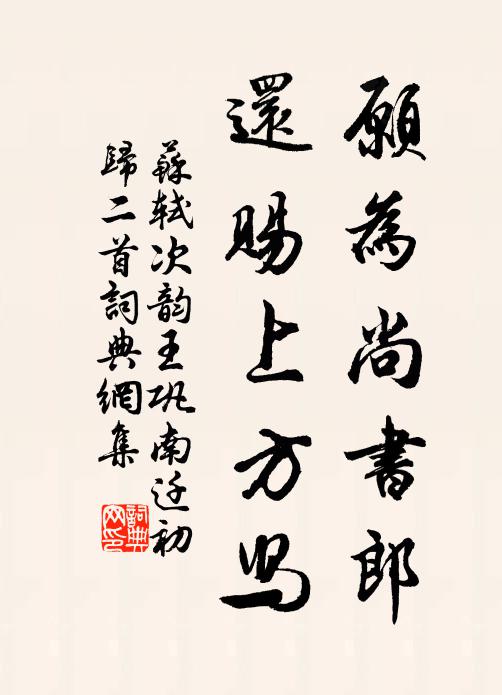 願為尚書郎
還賜上方舄
蘇軾次韵王巩南迁初
歸二首詞典網集
詞典
网印